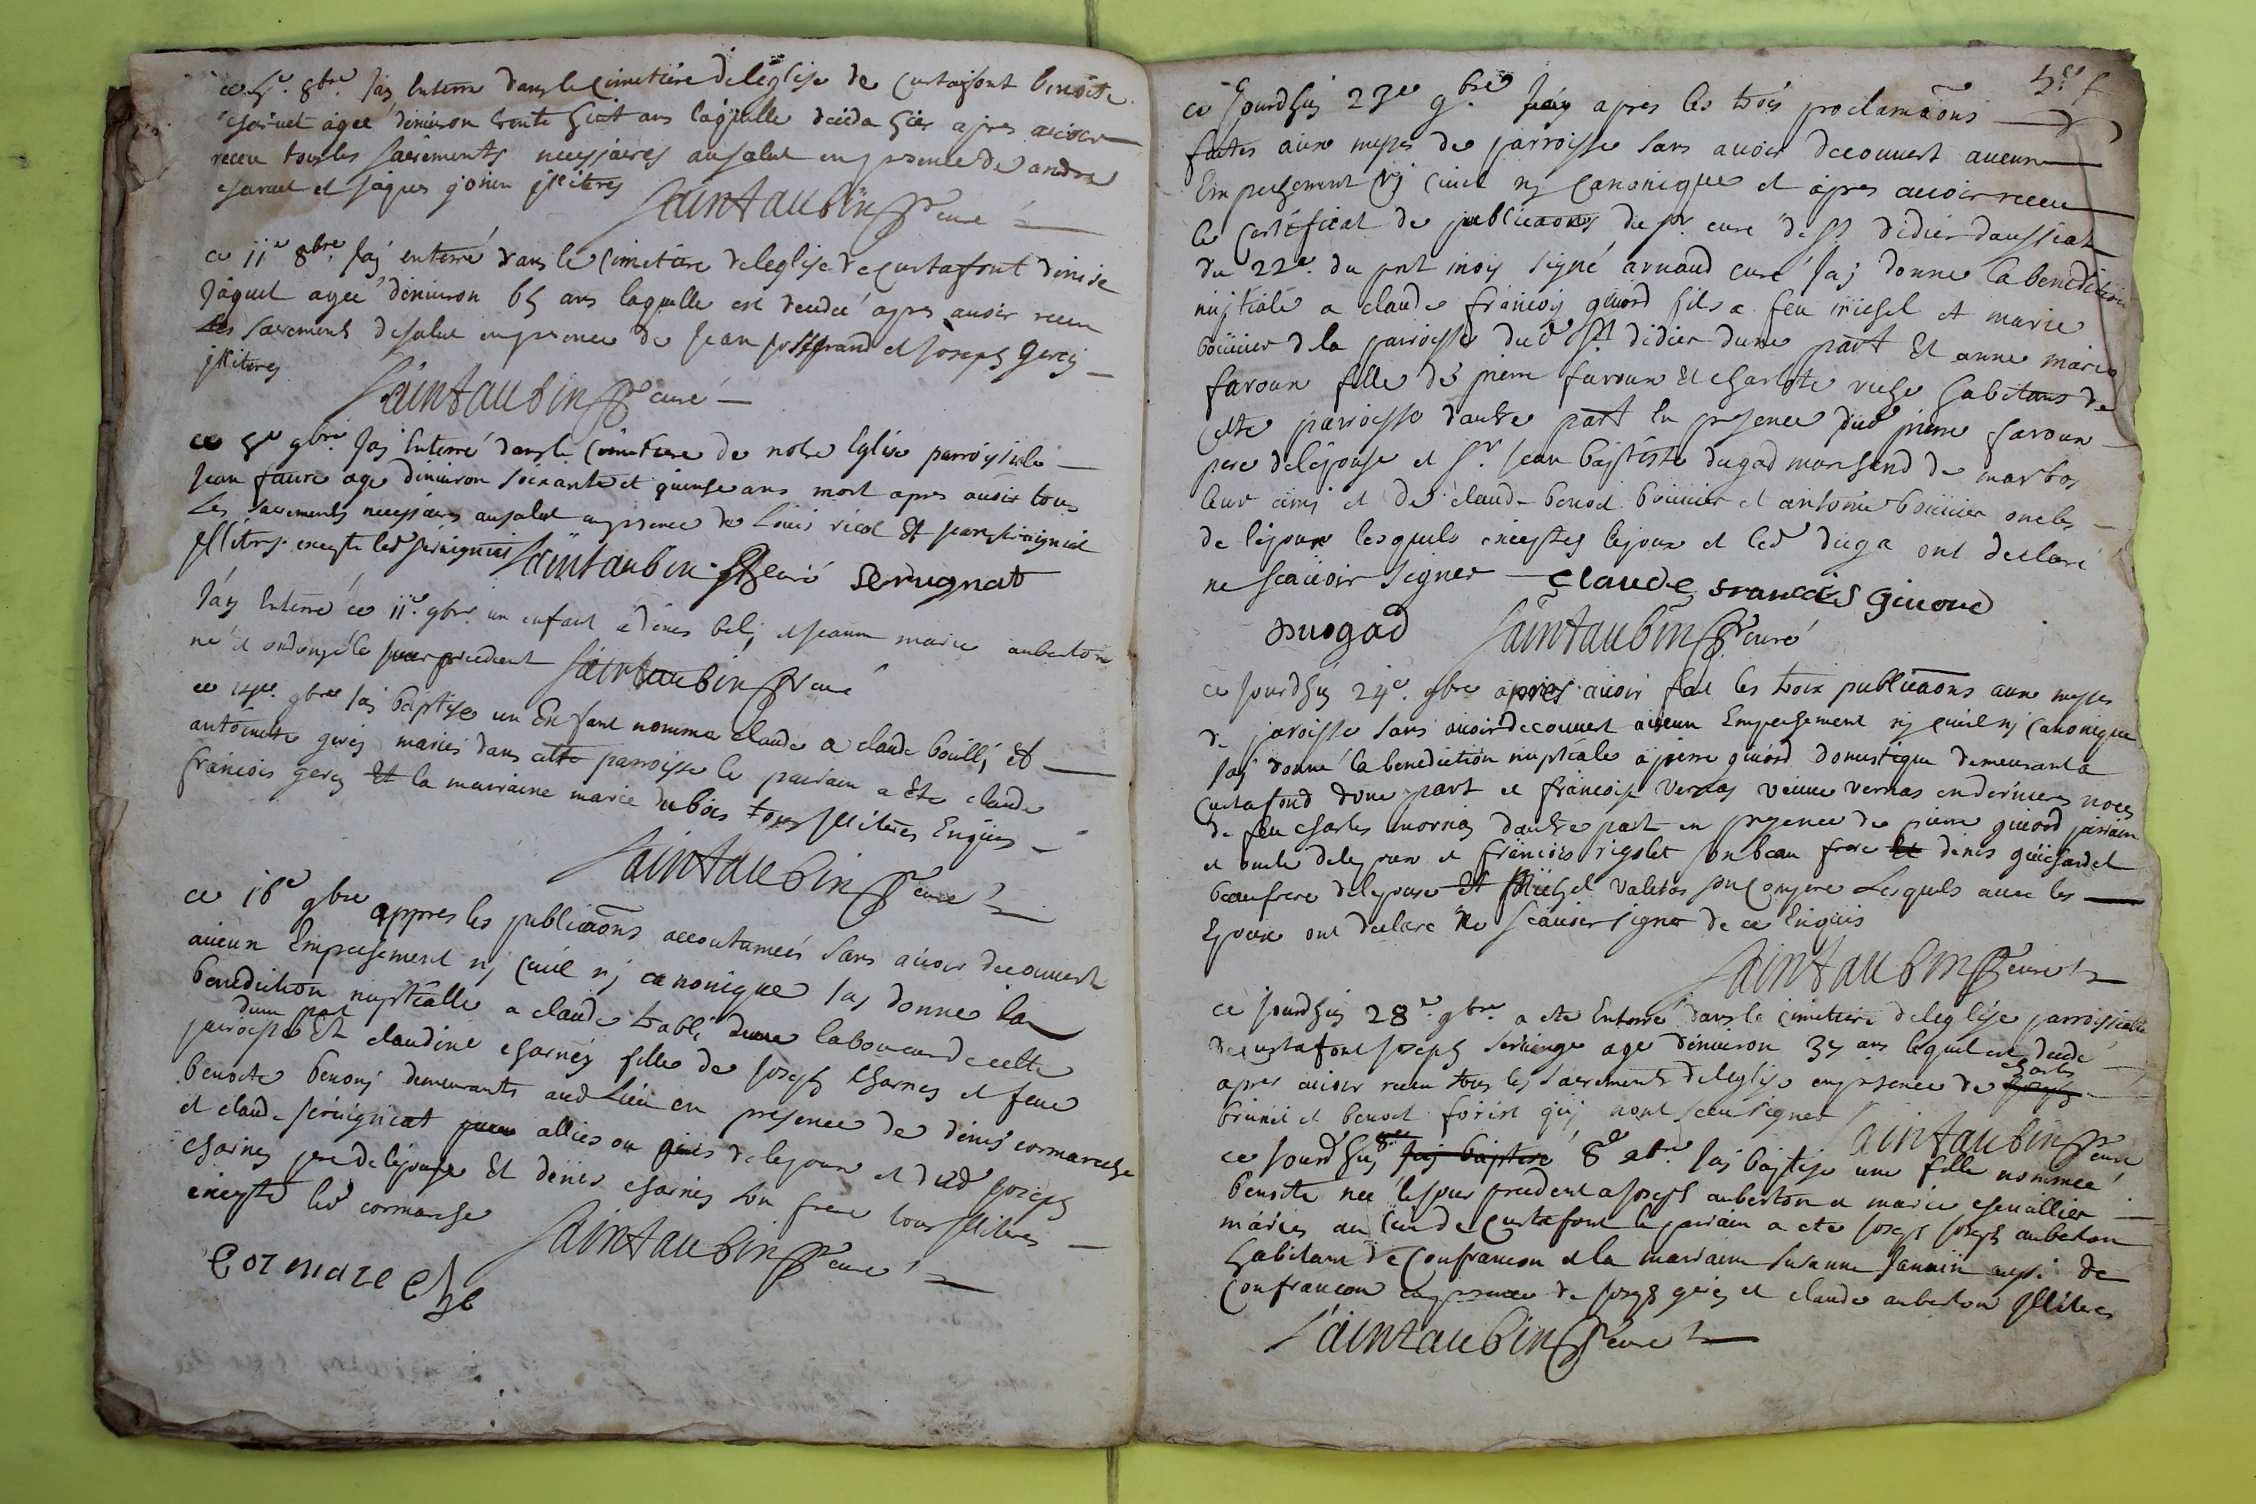 ce 5e. 8bre. Jay Enterre dans le Cimetiere de leglise de Curtafont benoite
charnet agee denuiron trente huit ans laquelle deceda hier apres auoir
receu tous les sacrements necessaires au salut en presence de andre
charnet et jaques illiteres
Saintaubin curé
ce 11e 8bre. Jay enterré dans le Cimetiere de leglise de Curtafont denise
jaquet agee denuiron 65 ans laquelle est decedeé apres auoir receu
les sacrements de salut en presence de Jean et Joseph gerey
illiteres
Saintaubin curé
ce 5e 9bre Jay Enterré dans le Cimetiere de notre Eglise parroissiale
Jean faure age denuiron soixante et quinse ans mort apres auoir tous
les sacrements necessaires au salut en presence de Louis ricol Et jean seruignat
illitres excepte led seruignat
Saintaubin curé Serugnat
Jay Enterré ce 11e. 9bre. un enfant a denis bely et jeanne marie auberton
né et ondoyé le jour precedent
Saintaubin curé
ce 14e. 9bre Jay baptise un Enfant nomme claude a claude bouilli et
antoinette gerey mariés dans cette parroisse le parrain a Ete claude
francois gerey Et la marraine marie dubois tous illiteres Enquis
Saintaubin curé
ce 16e 9bre appres les publicaons accoutumeés sans auoir decouuert
aucun Empechement nj ciuil nj canonique Jay donne la
benediction nuptialle a claude trabli laboureur de cette
dune part
parroisse Et claudine charney fille de joseph charney et feue
benoite benony demeurants aud Lieu en presence de denis cormareche
et claude seruignat alliés ou amis de lepoux et dud joseph
charney pere de lepouse Et denis charney son frere tous illiteres
excepté led cormareche
Saintaubin curé
Cormareche
ce Jourdhuy 23e 9bre Jay apres les trois proclamaons
faites aux messes de parroisse sans auoir decouuert aucun
Empechement nj ciuil nj Canonique et apres auoir receu
le certificat de publicaons du sr. curé de st. didier daussiat
du 22e. du pnt mois signé arnaud curé Jay donne la benediction
nuptiale a claude francois giuord fils a feu michel et marie
bouuier de la parroisse dud st didier dune part Et anne marie
faroux fille de pierre faroux et charlote ruche habitans de
cette parroisse dautre part En presence dud pierre faroux
pere de lepouse et sr. Jean baptiste dugad marchand de marbos
leur ami et de claude benoit bouuier et antoine bouuier oncles
de lepoux lesquels exceptes lepoux et led duga ont declaré
ne scauoir signer
claude francois giuord
Dugad
Saintaubin curé
ce jourdhuy 24e. 9bre apres auoir fait les trois publicaons aux messes
de parroisse sans auoir decouuert aucun Empechement nj ciuil nj canonique
Jay donné la benediction nuptiale a pierre giuord domestique demeurant a
Curtafond dune part et francoise Vernas veuue en dernieres noces
de feu charles mornay dautre part en presence de pierre giuord parrain
et oncle de lepoux et francois rigolet son beau frere denis guichardet
beaufrere de lepouse Et Michel Valetas son compere Lesquels auec les
Epoux ont declare Ne scauoir signer de ce Enquis
Saintaubin curé
ce jourdhuy 28e. 9bre. a ete Enterré dans le cimetiere de leglise parroissialle
de curtafont joseph age denuiron 35 ans lequel est decedé
apres auoir receu tous les sacrements de leglise en presence de charles
brunet et benoit forest qui nont sceu signer
Saintaubin curé
ce Jourdhuy 8e Xbre Jay baptise une fille nommeé
benoite neé le jour precedent a joseph auberton et marie cheuallier
mariés au lieu de curtafont le parrain a ete joseph joseph auberton
habitant de Confrancon et la marraine susanne Jannin aussi de
Confrancon en presence de joseph gerey et claude auberton illiteres
Saintaubin curé